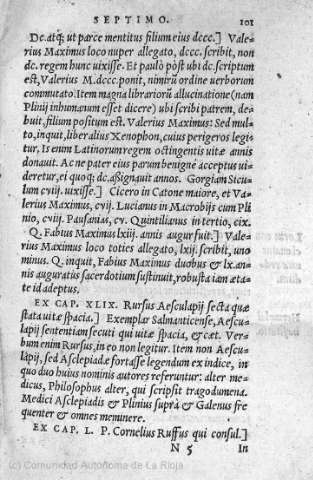 SEPTIMO. 101
Dc. atq; ut parce mentitus filium eius dccc.] Vale-
rius Maximus loco nuper allegato, dccc. scribit, non
dc. regem hunc uixisse. Et paulò pòst ubi dc. scriptum
est, Valerius M.dccc. ponit, nimirũ ordine uerborum
commutato. Item magna librariorũ allucinatione (nam
Plinij inhumanum esset dicere) ubi scribi patrem, de-
buit, filium positum est. Valerius Maximus: Sed mul-
to, inquit, liberalius Xenophon, cuius perigeros legi-
tur, Is enum Latinorum regem octingentis uitæ annis
donauit. Ac ne pater eius parum benignè acceptus ui-
deretur, ei quoq; dc. aßignauit annos. Gorgiam Sicu-
lum cviij. uixisse.] Cicero in Catone maiore, et Va-
lerius Maximus, cvij. Lucianus in Macrobijs cum Pli
nio, cviij. Pausanias, cv. Quintilianus in tertio, cix.
Q. Fabius Maximus lxiij. annis augur fuit.] Vale-
rius Maximus loco toties allegato, lxij. scribit, uno
minus. Q. inquit, Fabius Maximus duobus & lx. an-
nis auguratus sacerdotium sustinuit, robusta iam æta-
te id adeptus.
EX CAP. XLIX. Rursus Aesculapij secta quæ
stata uitæ spacia.] Exemplar Salmanticense, Aescu-
lapij sententiam secuti qui uitæ spacia, & cæt. Ver-
bum enim Rursus, in eo non legitur. Item non Aescu-
lapij, sed Asclepiadæ fortasse legendum ex indice, in
quo duo huius nominis autores referuntur: alter me-
dicus, Philosophus alter, qui scripsit tragodumena.
Medici Asclepiadis & Plinius suprà & Galenus fre
quenter & omnes meminere.
EX CAP. L. P. Cornelius Ruffus qui consul.]
N 5 In
(c) Comunidad Autónoma de La Rioja